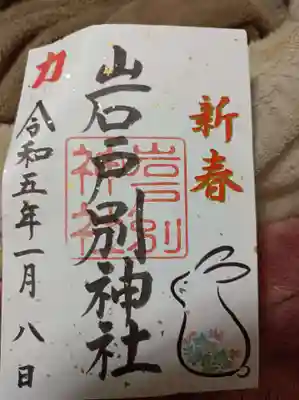 新春
岩戸別神社
岩戸別
神社
力
令和五年一月八日